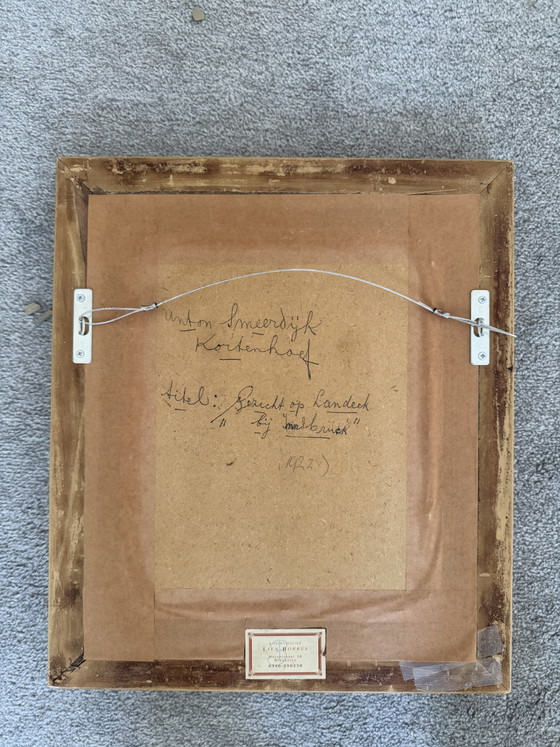 Anton Smeerdijk
Kortenhoef
titel: Gezicht op Landeck
" bij Innsbruck"
(1922)
LIES HOPPUS